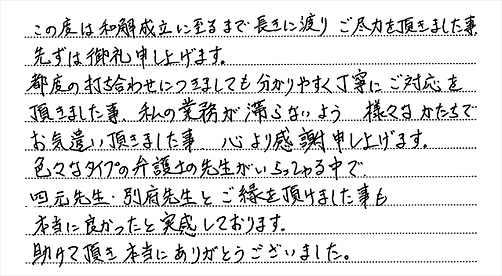 この度は和解成立に至るまで長きに渡りご尽力を頂きました事、
先ずは御礼申し上げます。
都度の打ち合わせにつきましても分かりやすく丁寧にご対応を
頂きました事、私の業務が滞らないよう様々なかたちで
お気遣い頂きました事、心より感謝申し上げます。
色々なタイプの弁護士の先生がいらっしゃる中で、
四元先生・別府先生とご縁を頂けました事も
本当に良かったと実感しております。
助けて頂き本当にありがとうございました。